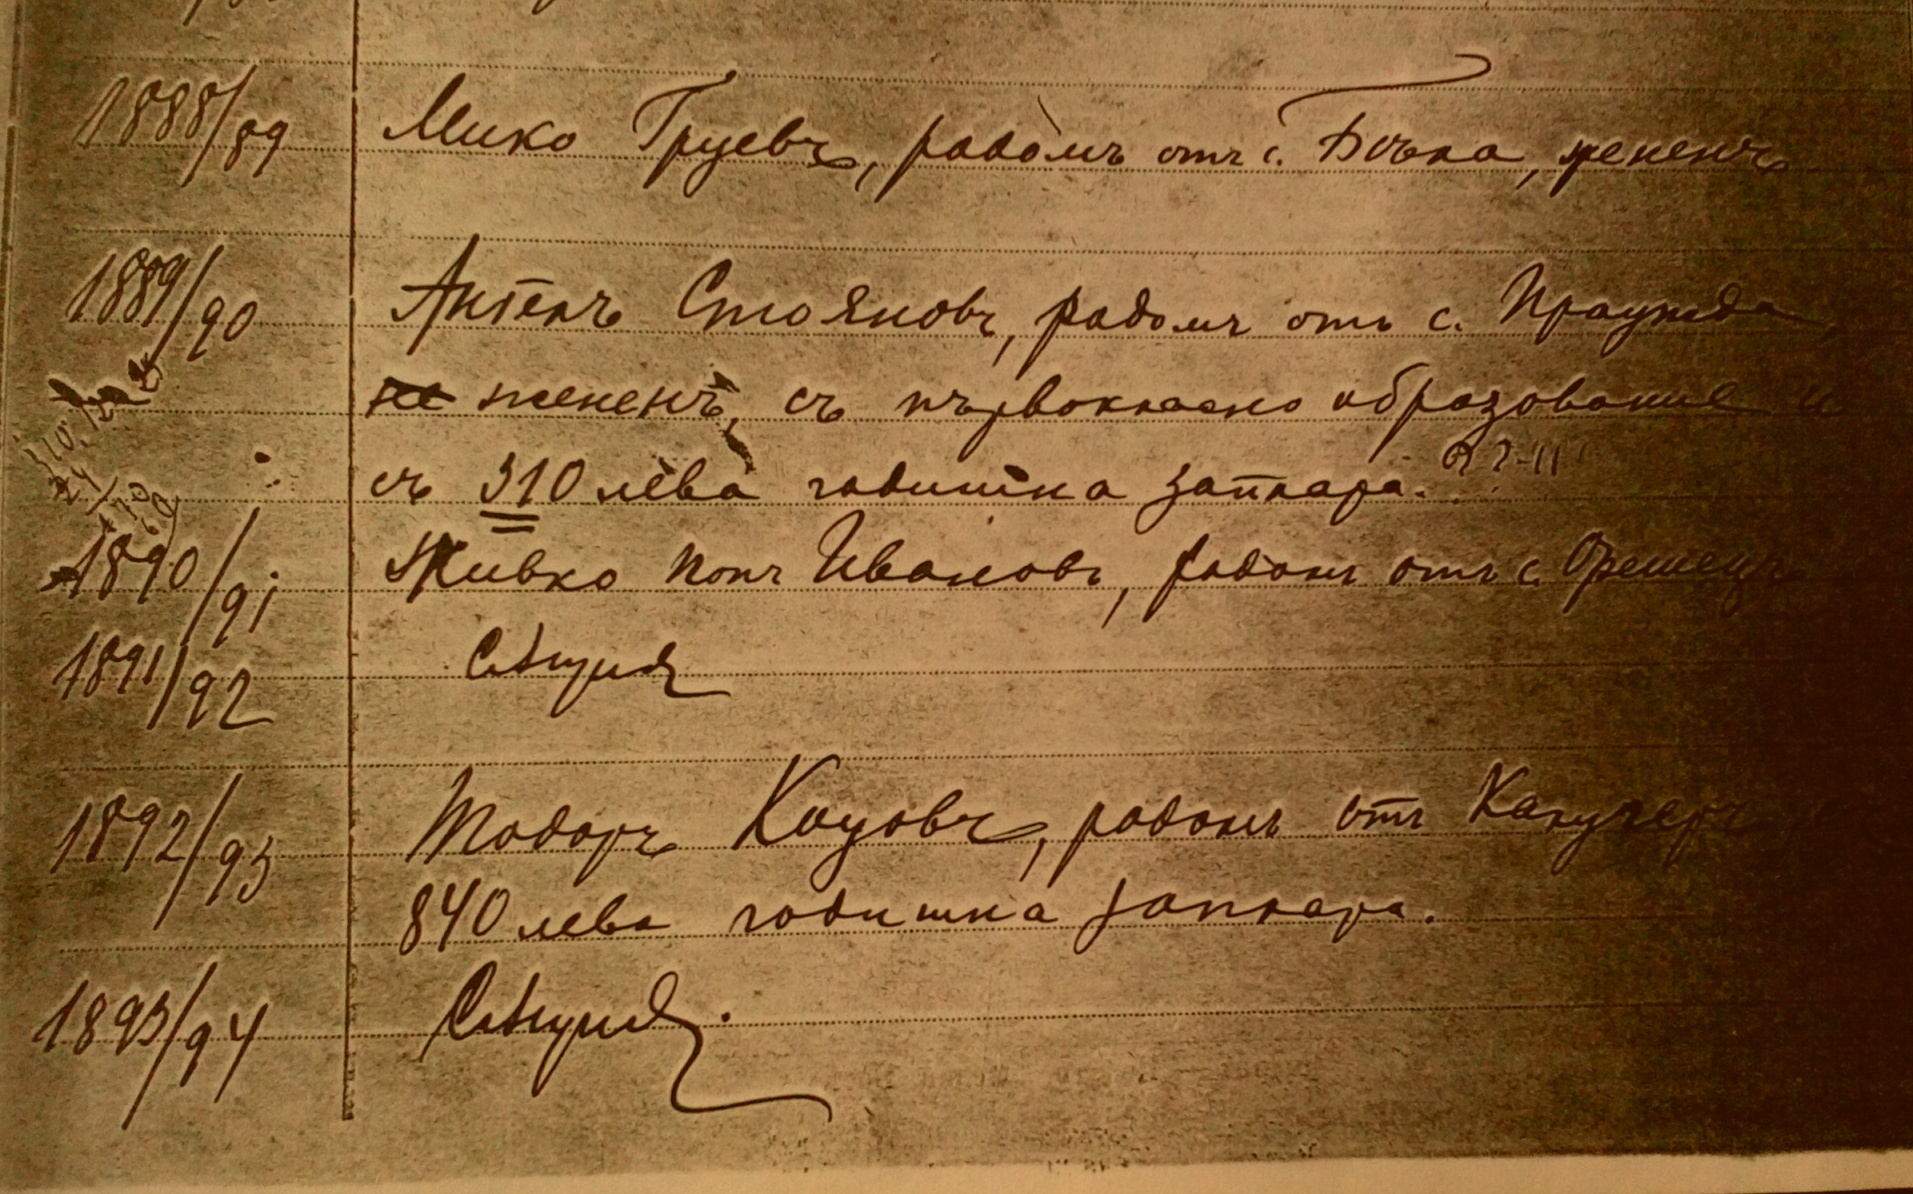 1888/89 Мико Груевъ, родомъ отъ с. Бѣла, жененъ
1889/90 Ангелъ Стояновъ, родомъ отъ с. Праужда,
не жененъ, съ първокласно образование и
съ 310 лева годишна заплата.
1890/91 Живко попъ Ивановъ, родомъ отъ с. Орешецъ
1891/92 Сѫщия
1892/93 Тодоръ Коцовъ, родомъ отъ
840 лева годишна заплата.
1893/94 Сѫщия.